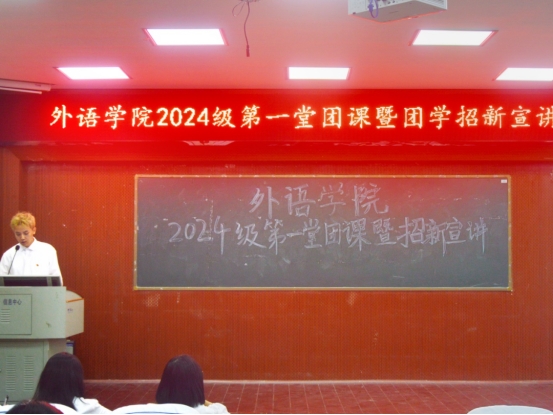 外语学院2024级第一堂团课暨团学招新宣讲
外语学院
2024级第一堂团课暨招新宣讲
信息中心